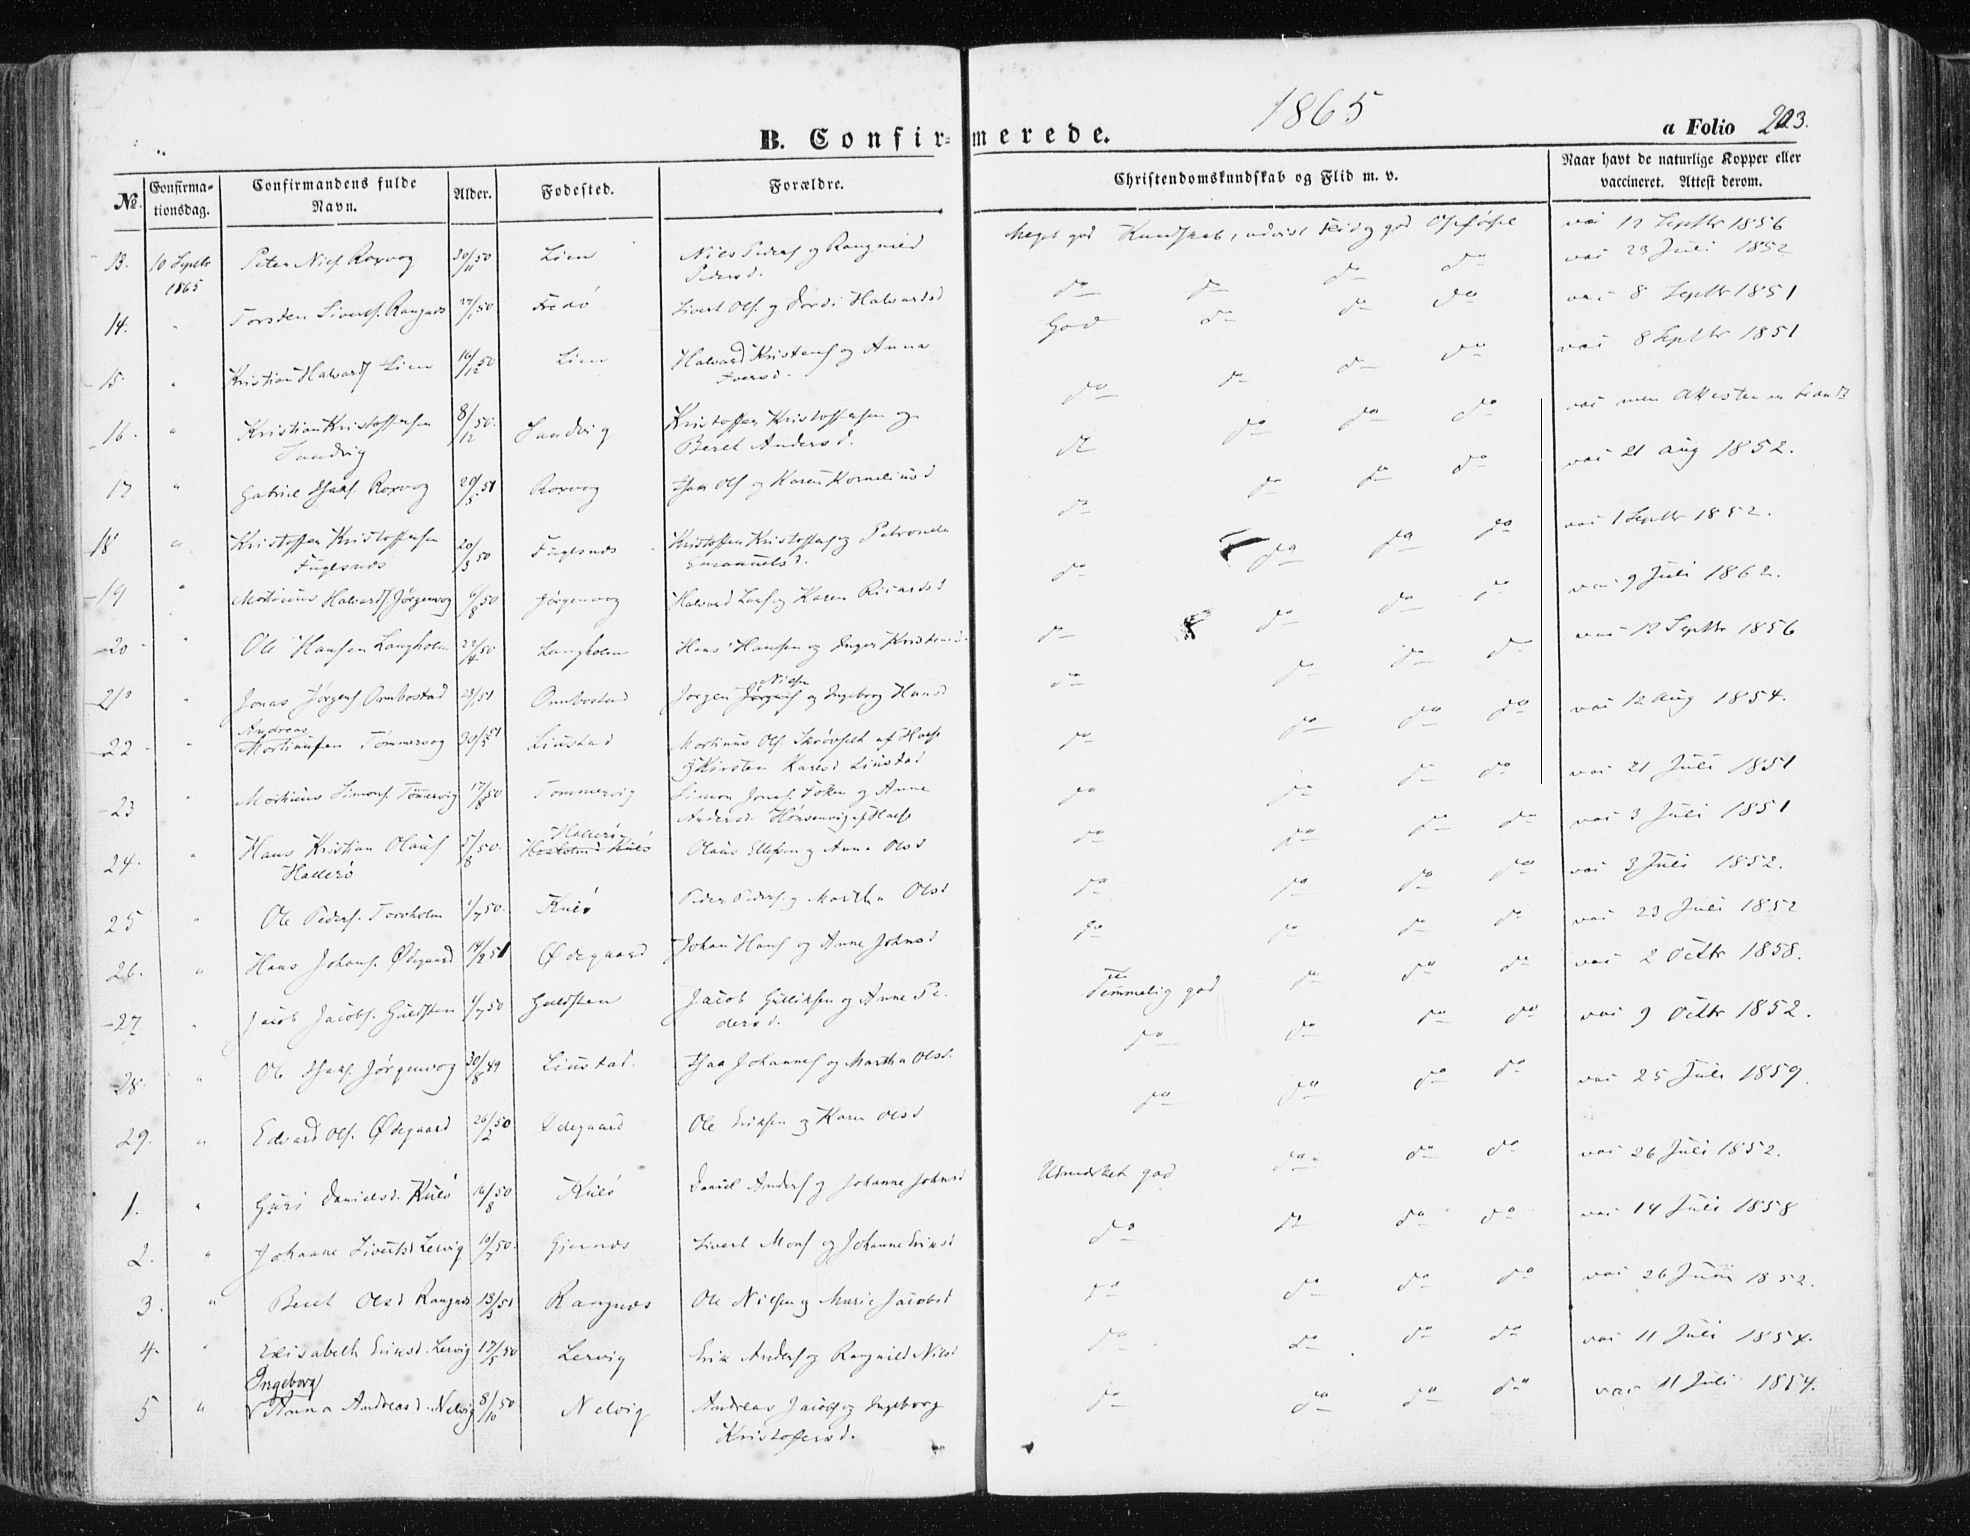 1865
B. Confirmerede.
a Folio 203.
No. Confirmationsdag. Confirmandens fulde Navn. Alder. Fødested. Forældre. Christendomskundskab og Flid m. v. Naar havt de naturlige Kopper eller vaccineret. Attest derom.
Meget god Kundskab, udvist Flid og god Opførsel vac 12 Septbr 1856
13. 10 Septbr 1865 Peter Niels. Roxvog 30/11 50 Lien Niels Peders og Rangnild Pedersd. do do do do vac 23 Juli 1852
14. " Torsten Siverts. Rangnæs 50 Fredø Sivert Ols. og Dordi Halvardsd God do do do vac 8 Septbr 1851
15. " Kristian Halvards Lien 16/12 50 Lien Halvard Kristens og Anna Iversd. do do do do vac 8 Septbr 1851
16. " Kristian Kristoffersen Sandvig 8/12 50. Sandvig Kristoffer Kristoffersen og Beret Andersd. do do do do vac men Attesten er brændt
17 " Gabriel Isaks. Roxvog 29/5 51 Roxvog Isak Ols og Karen Korneliusd do do do do vac 21 Aug 1852.
18 " Kristoffer Kristoffersen Fuglesnæs 20/3 50 Fuglesnæs Kristoffer Kristoffers og Petronelle Emanuelsd. do do do do vac 1 Septbr 1852.
19 " Mortinus Halvards Jørgenvog 6/8 50 Jørgenvog Halvard Lars og Karen Ricardsd do do do do vac 9 Juli 1862.
20 " Ole Hansen Langholm 22/4 50 Langholm Hans Hansen og Inger Kristensd do do do do vac 12 Septbr 1856
21 " Jonas Jørgens Ormbostad 51 Ormbostad Jørgen Nielsen og Ingeborg Hansd do do do do vac 12 Aug 1854.
22 " Andreas Mortinussen Tømmervog 30/5 51 Liustad Mortinus Ols og Kirsten Karlsd Liustad do do do vac 21 Juli 1851
23 " Mortinus Simons. Tømmervig 17/8 50 Tømmervig Simon Jonas. og Anne Andersd. do do do do vac 3 Juli 1851
24. " Hans Kristian Olaus Hallerø 5/8 50. Hallerø Olaus Ellefsen og Anna Olsd do do do do vac 3 Juli 1852.
25 " Ole Peders. Torvholm 1/7 50. Kulø Peder Peders. og Martha Olsd do do do do vac 23 Juli 1852
26. " Hans Johans. Ødegaard 14/2 51 Ødegaard Johan Hans og Anne Johnsd do do do do vac 2 Octbr 1858.
27 " Jacob Jacobs. Guldsten 50 Guldsten Jacob Gulliksen og Anne Pedersd. Temmelig god do do do vac 9 Octbr 1852.
28. " Ole Isaks. Jørgenvog 30/8 49 Liustad. Isak Johannes og Martha Olsd. do do do do vac 25 Juli 1859.
29. " Edvard Ols. Ødegaard 26/2 50 Ødegaard Ole Eriksen og Karen Olsd do do do do
1. " Guri Danielsd. Kulø 16/8 50 Kulø Daniel Anders og Johanne Johnsd Udmærket god do do do vac 26 Juli 1852.
2. " Johanne Sivertsd Lervig 10/7 50. Gjernæs Sivert Mons og Johanne Eriksd do do do do vac 14 Juli 1858
3. " Beret Olsd Rangnæs 13/3 51 Rangnæs Ole Nielsen og Marie Jacobsd do do do do vac 26 Juni 1852.
4. " Elisabeth Eriksd. Lervig 17/5 50 Lervig Erik Anders og Rangnild Nilsd do do do do vac 11 Juli 1854.
5 " Ingeborg Anna Andreasd. Nelvig 8/10 50 Nelvig Andreas Jacobs og Ingeborg Kristofersd. do do do do vac 11 Juli 1854.